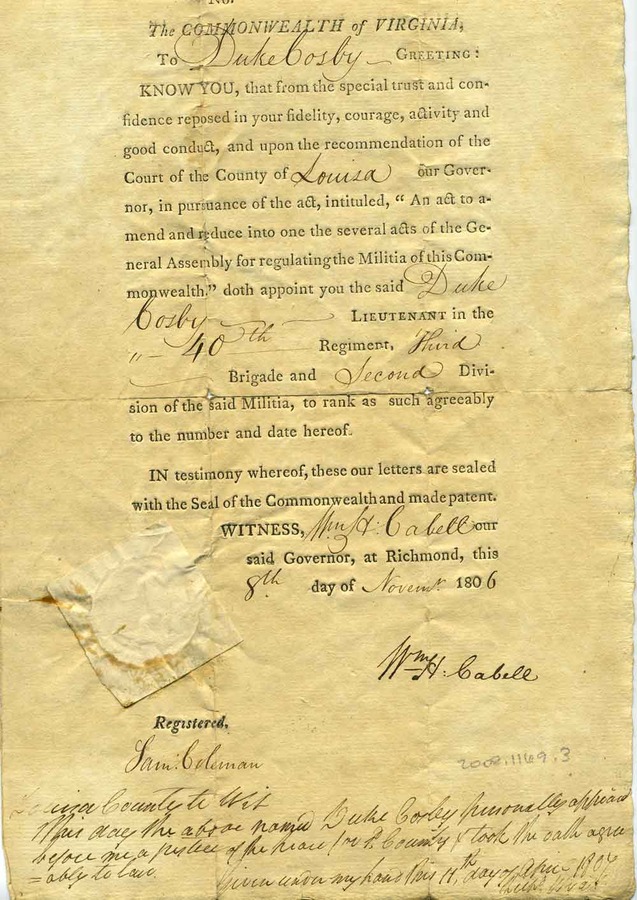 No.
The COMMONWEALTH of VIRGINIA,
To Duke Cosby GREETING:
KNOW YOU, that from the special trust and con-
fidence reposed in your fidelity, courage, activity and
good conduct, and upon the recommendation of the
Court of the County of Louisa our Gover-
nor, in pursuance of the act, intituled, “ An act to a-
mend and reduce into one the several acts of the Ge-
neral Assembly for regulating the Militia of this Com-
monwealth.” doth appoint you the said Duke
Cosby LIEUTENANT in the
" 40th Regiment, Third
Brigade and Second Divi-
sion of the said Militia, to rank as such agreeably
to the number and date hereof.
IN testimony whereof, these our letters are sealed
with the Seal of the Commonwealth and made patent.
WITNESS, Wm H. Cabell our
said Governor, at Richmond, this
8th day of Novemr. 1806
Wm H: Cabell
Registered,
Sam: Coleman
2008.1169.3
Louisa County to Wit
This day the above named Duke Cosby personally appeared
before me a justice of the peace for sd. County & took the oath agree
=ably to law.
Given under my hand this 11th day of April 1807